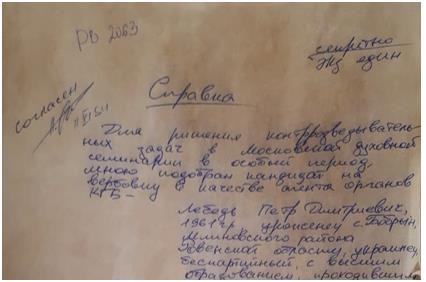 РВ 2063
секретно
Экз един
согласен
Справка
Для решения контрразведыватель-
ных задач в Московской духовной
семинарии в особый период
мною подобран кандидат на
вербовку в качестве агента органов
КГБ –
Лебедь Петр Дмитриевич,
1961 г.р. уроженец с.
Млиновского района
Ровенской области, украинец,
беспартийный, с высшим
образованием, проходивший